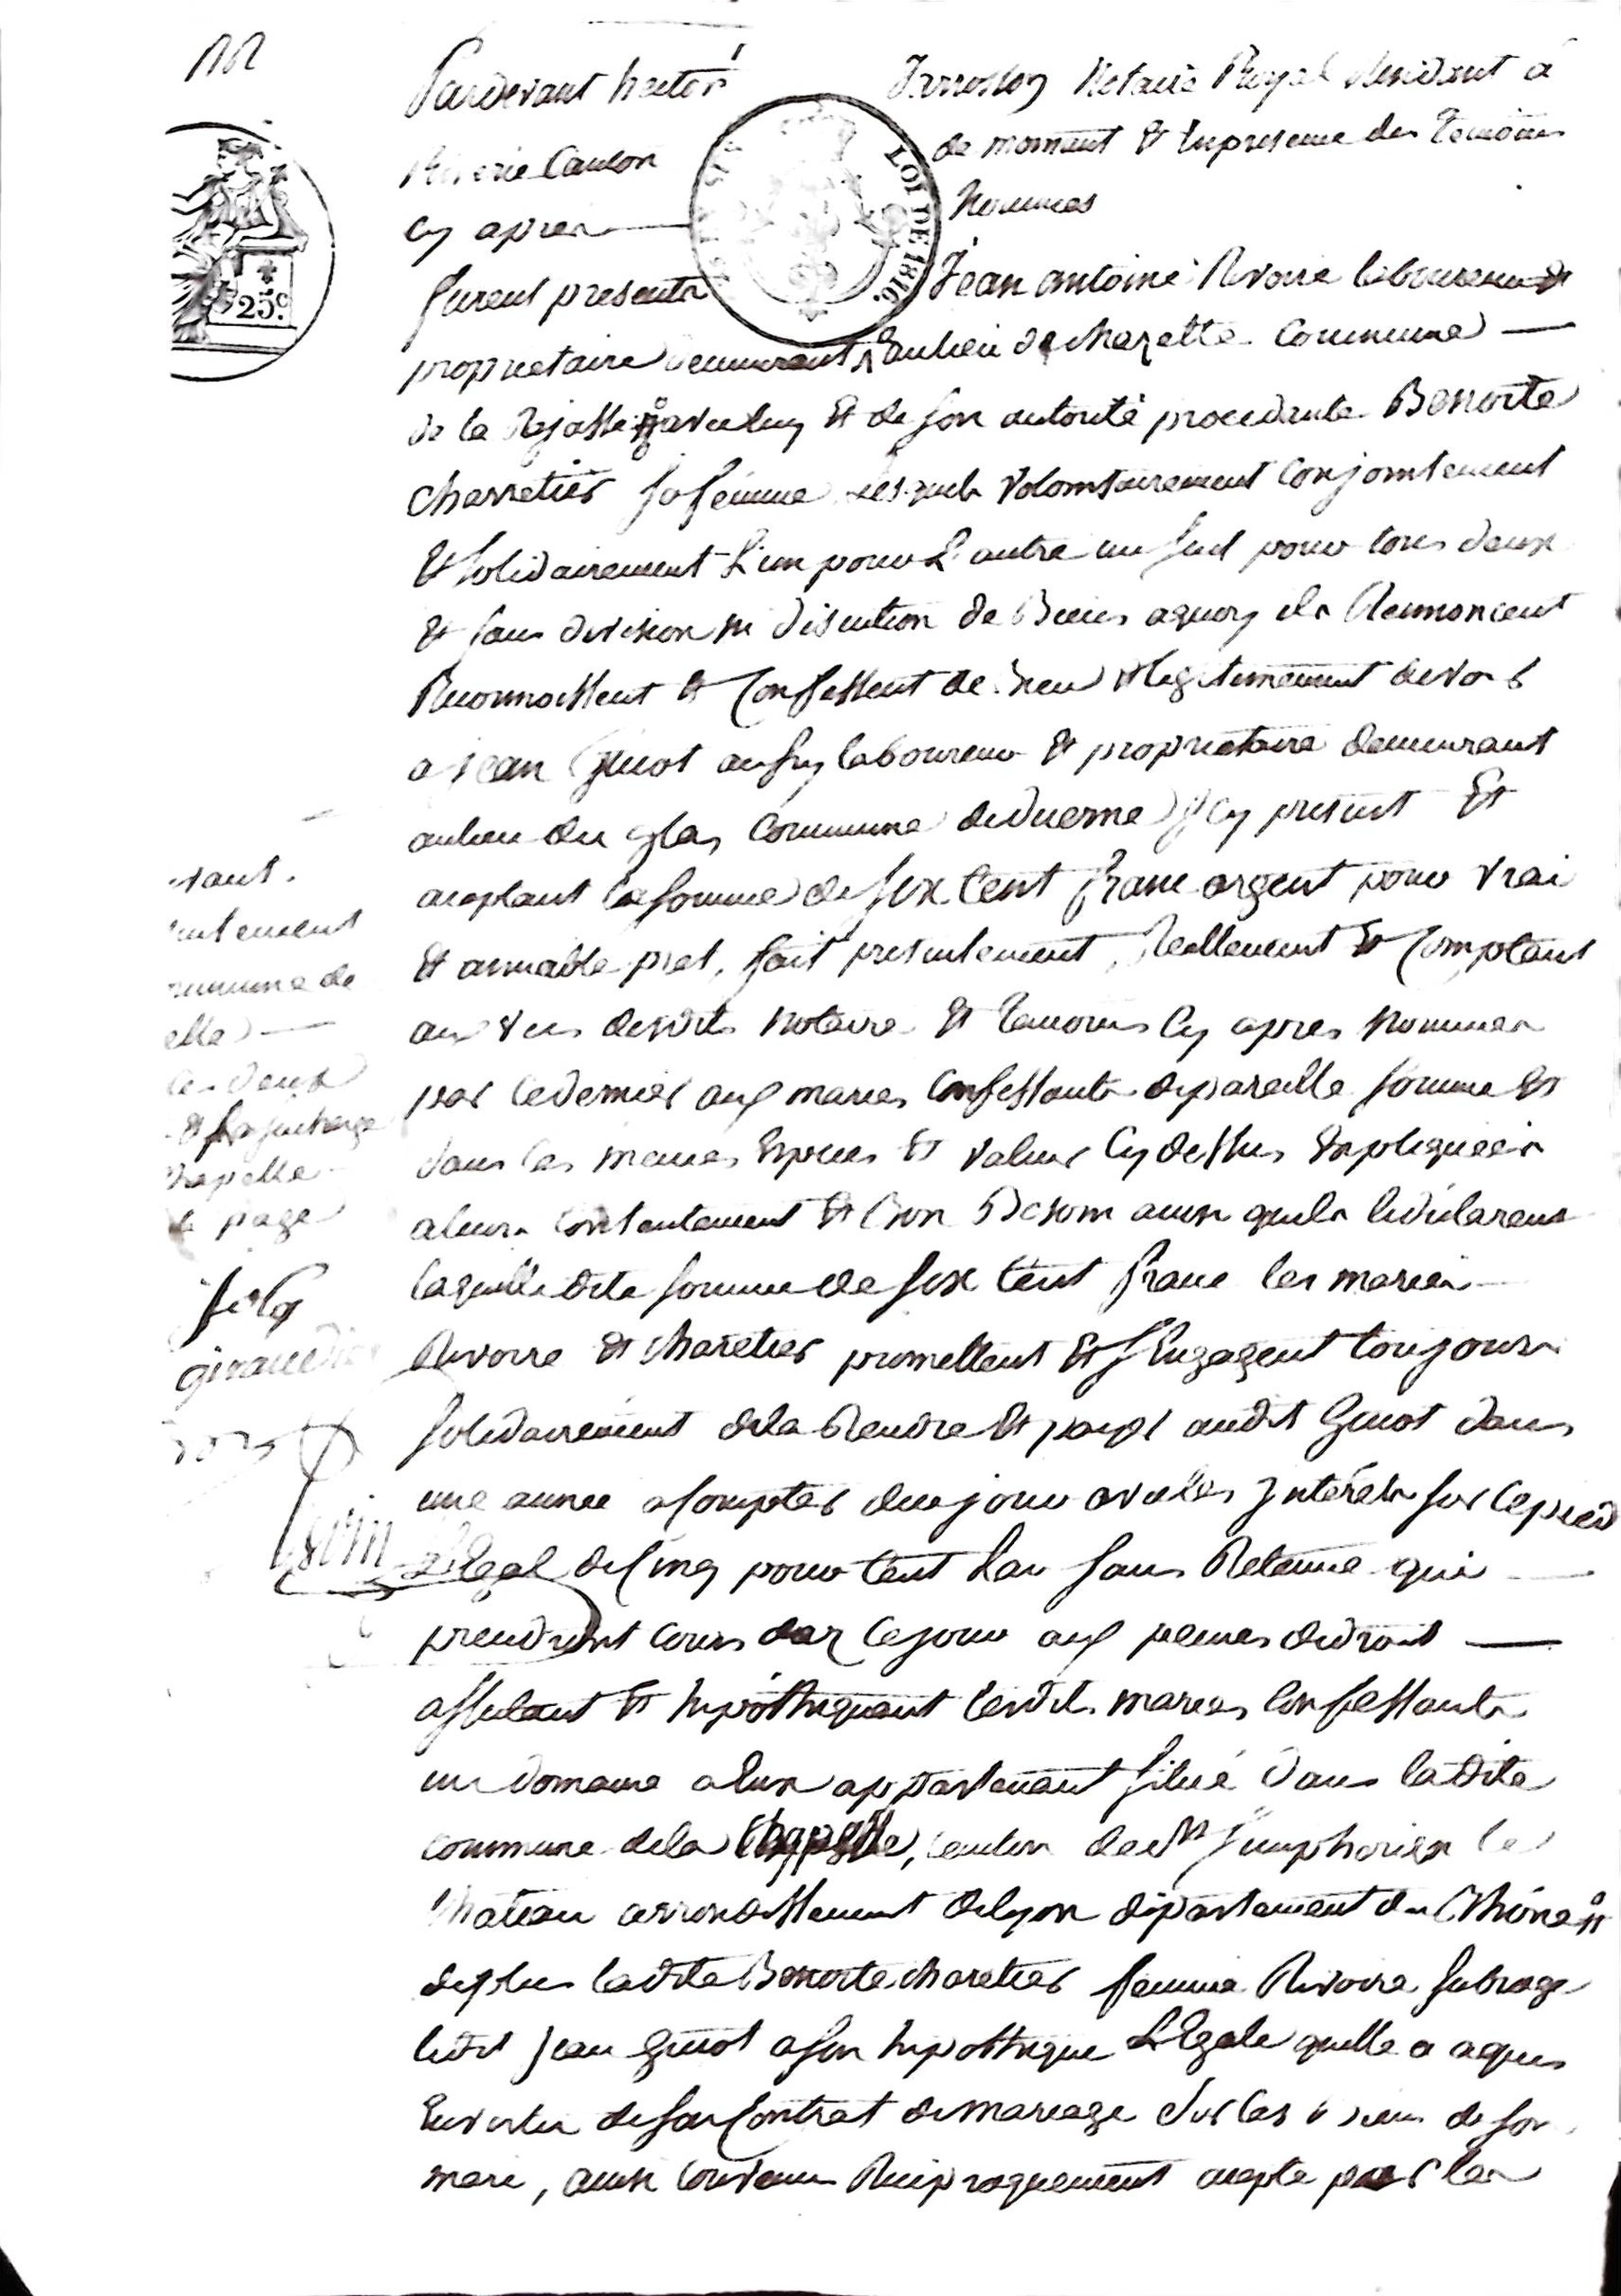 Pardevant hector Jarrosson Notaire Royal Residant a
Riverie Canton de mornant & En presence des Temoins
Cy apres Nommes
LOI DE 1816.
25c.
furent presents Jean antoine Rivoire laboureur &
proprietaire demeurant au lieu de chazelle Commune
de la Rajasse avec luy & de son autorité procedante Benoite
charretier sa femme lesquels volomtairement Conjointement
& solidairement L'un pour L'autre un seul pour tous deux
& sans division ni discution de Biens aquoy ils Renoncent
Reconnoissent & Confessent de bien & legitimement devoir
a jean Guiot aussy laboureur & proprietaire demeurant
au lieu du glas Commune de duerne icy present Et
aceptant la somme de six Cent franc argent pour vrai
& amiable pret, fait presentement, Reellement & Comptant
aux vus desdits Notaire & Temoins Cy apres Nommes
par ce dernier aux maries Confessants de pareille somme &
dans les memes Especes & valeur Cy dessus Expliqueés
a leurs Contentement & Bon Besoin ainsi quils le déclarent
laquelle dite somme de six Cent franc les mariés
Rivoire & charetier promettent & s'Engagent toujours
solidairement de la Rendre & payer audit Guiot dans
une année a Compter de ce jour avec les Intérêts sur le pied
L'Egal de Cinq pour Cent L'an sans Retenue qui
prendront cours dez ce jour aux peines de droit
affectant & hypothequant lesdits maries Confessants
un domaine a Eux appartenant situé dans ladite
commune de la Chappelle, Canton de St Simphorien le
Chateau arrondissement de lyon département du Rhône
de plus ladite Benoite charetier femme Rivoire subroge
ledit Jean Guiot a son hypotheque L'Egale quelle a aquis
En vertu de son Contrat de mariage sur les biens de son
mari, ainsi Convenu Reciproquement acepté par les
vant.
ntement
mmune de
elle
les deux
chapelle
page